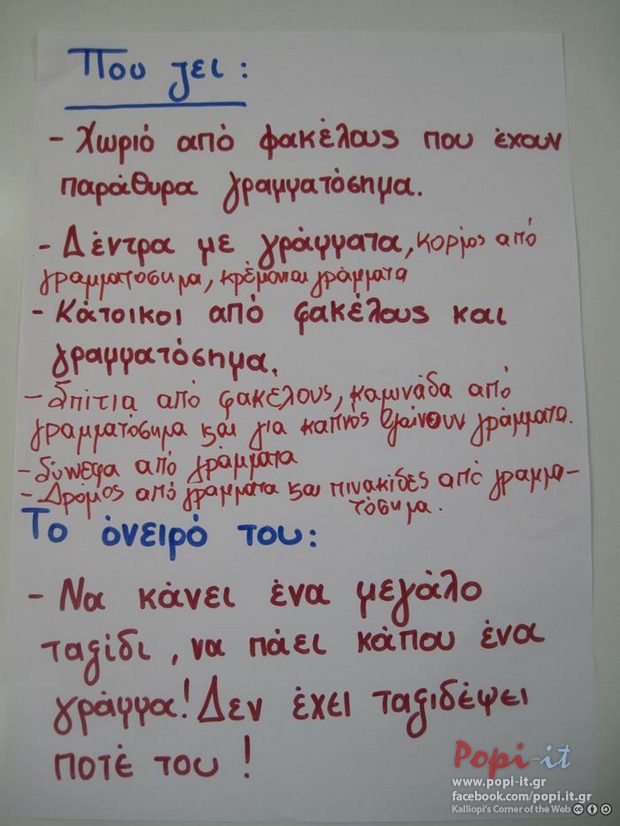 Που ζει:
- Χωριό από φακέλους που έχουν
παράθυρα γραμματόσημα.
- Δέντρα με γράμματα, κορμός από
γραμματόσημα, κρέμονται γράμματα
- Κάτοικοι από φακέλους και
γραμματόσημα.
- Σπίτια από φακέλους, καμινάδα από
γραμματόσημα και για καπνός βγαίνουν γράμματα.
- Σύννεφα από γράμματα
- Δρόμος από γράμματα και πινακίδες από γραμμα-
τόσημα.
Το όνειρό του:
- Να κάνει ένα μεγάλο
ταξίδι, να πάει κάπου ένα
γράμμα! Δεν έχει ταξιδέψει
ποτέ του!
Popi-it
www.popi-it.gr
facebook.com/popi.it.gr
Kalliopi's Corner of the Web